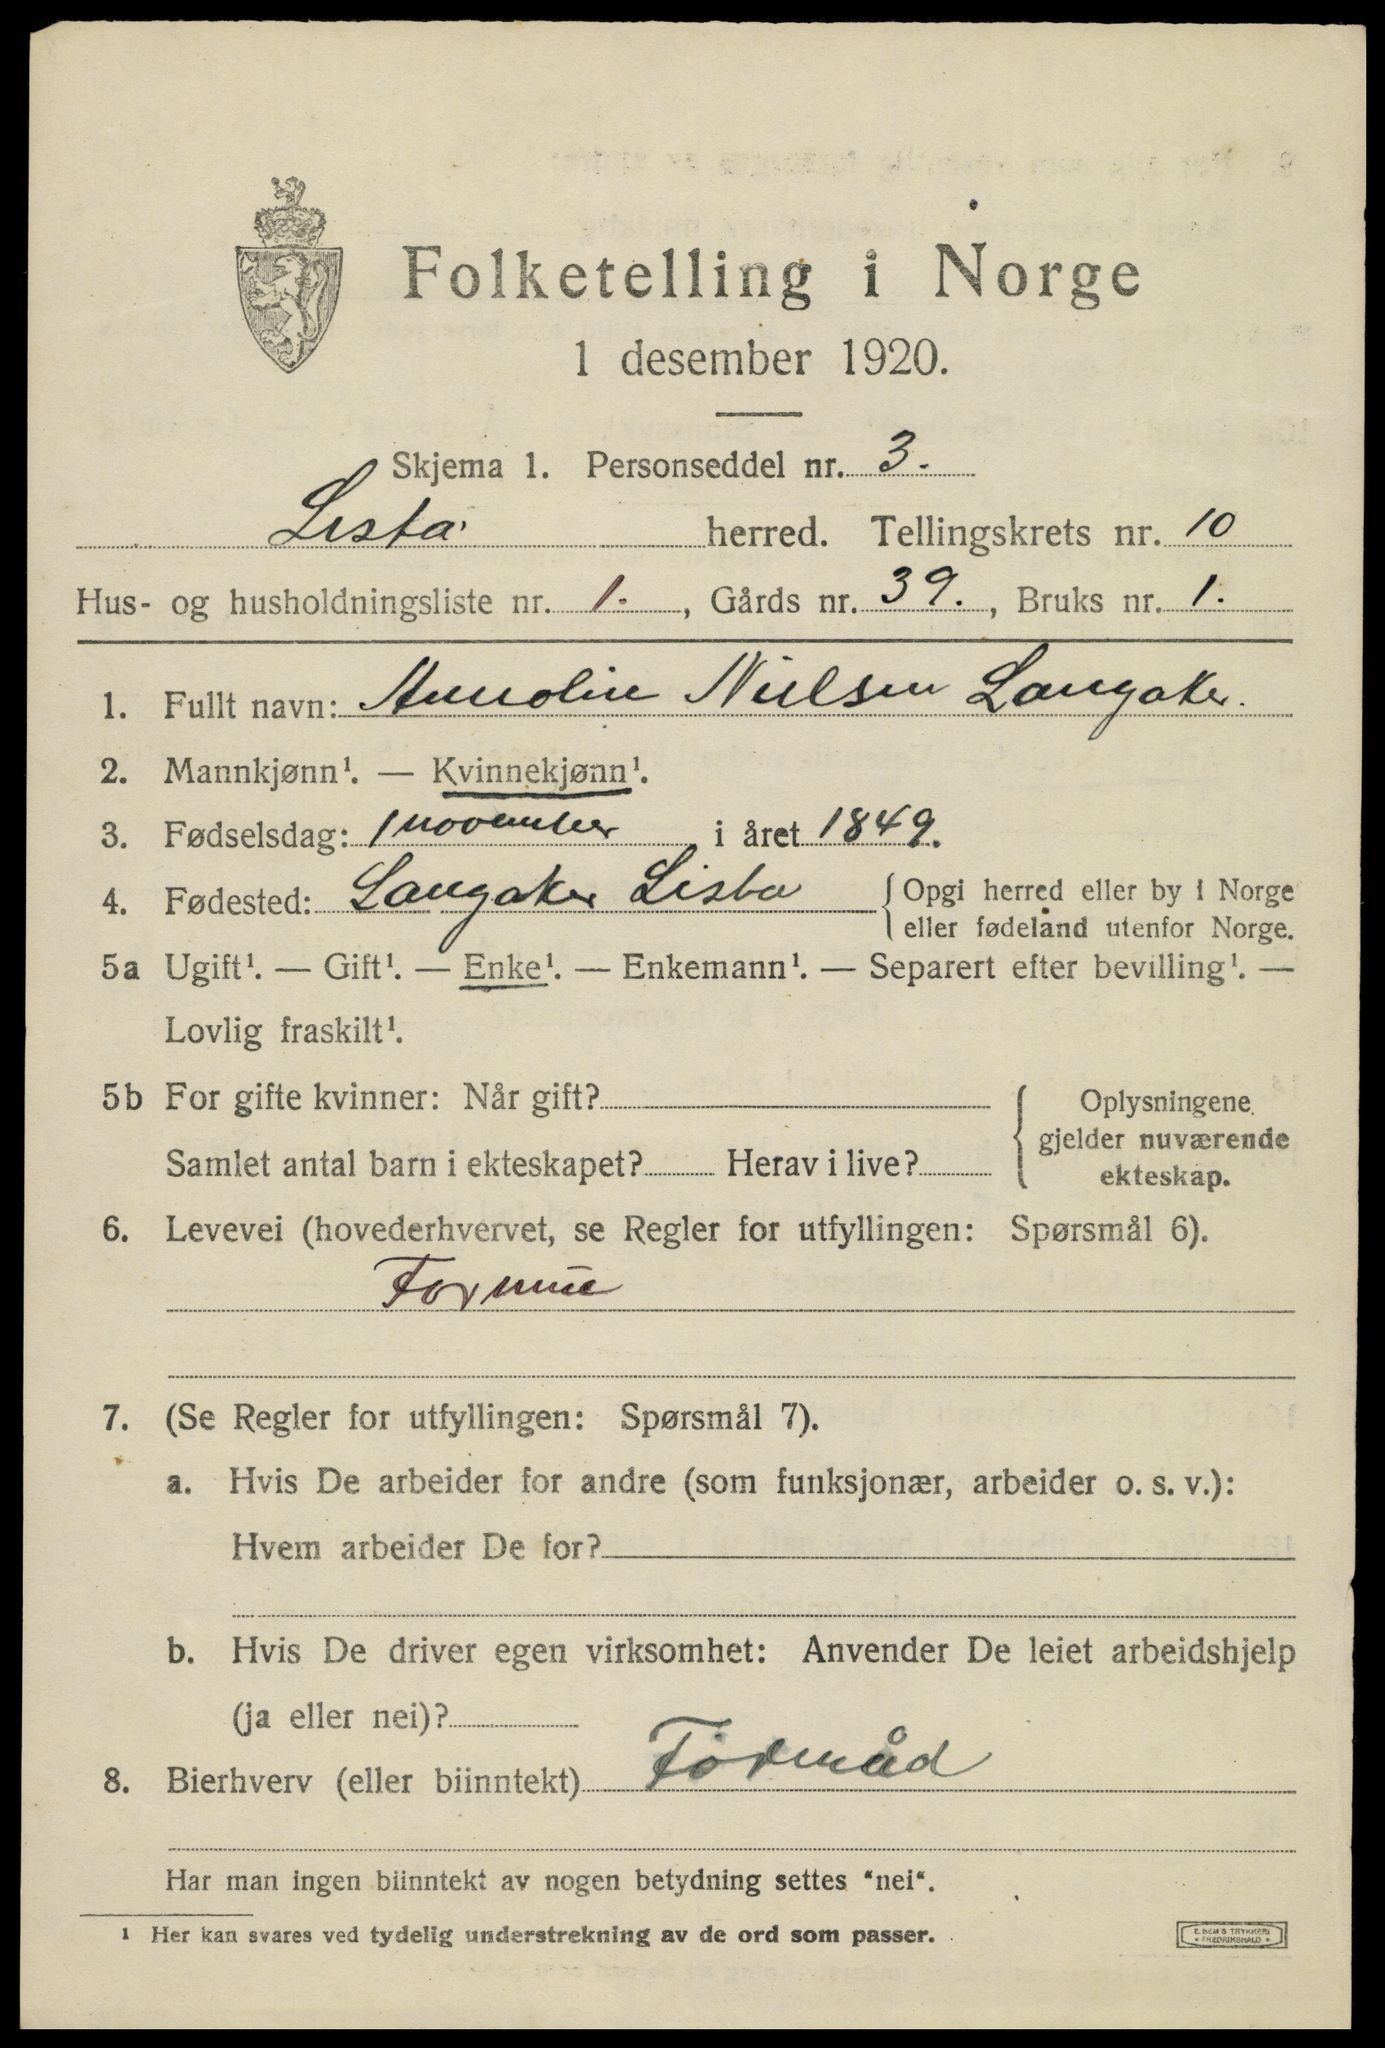 Folketelling i Norge
1 desember 1920.
Skjema 1. Personseddel nr. 3.
Lista herred. Tellingskrets nr. 10
Hus- og husholdningsliste nr. 1., Gårds nr. 39., Bruks nr. 1.
1. Fullt navn: Nielsen Langaker.
2. Mannkjønn¹. — Kvinnekjønn¹.
3. Fødselsdag: 1 november i året 1849.
4. Fødested: Langaker Lista { Opgi herred eller by i Norge
eller fødeland utenfor Norge.
5a Ugift¹. — Gift¹. — Enke¹. — Enkemann¹. — Separert efter bevilling¹. —
Lovlig fraskilt¹.
5b For gifte kvinner: Når gift? { Oplysningene
gjelder nuværende
Samlet antal barn i ekteskapet? Herav i live?
ekteskap.
6. Levevei (hovederhvervet, se Regler for utfyllingen: Spørsmål 6).
Formue
7. (Se Regler for utfyllingen: Spørsmål 7).
a. Hvis De arbeider for andre (som funksjonær, arbeider o. s. v.):
Hvem arbeider De for?
b. Hvis De driver egen virksomhet: Anvender De leiet arbeidshjelp
(ja eller nei)?
8. Bierhverv (eller biinntekt) Førnåd
Har man ingen biinntekt av nogen betydning settes "nei".
¹ Her kan svares ved tydelig understrekning av de ord som passer.
E. SEM S TRYKKERI
FREDRIKSHALD